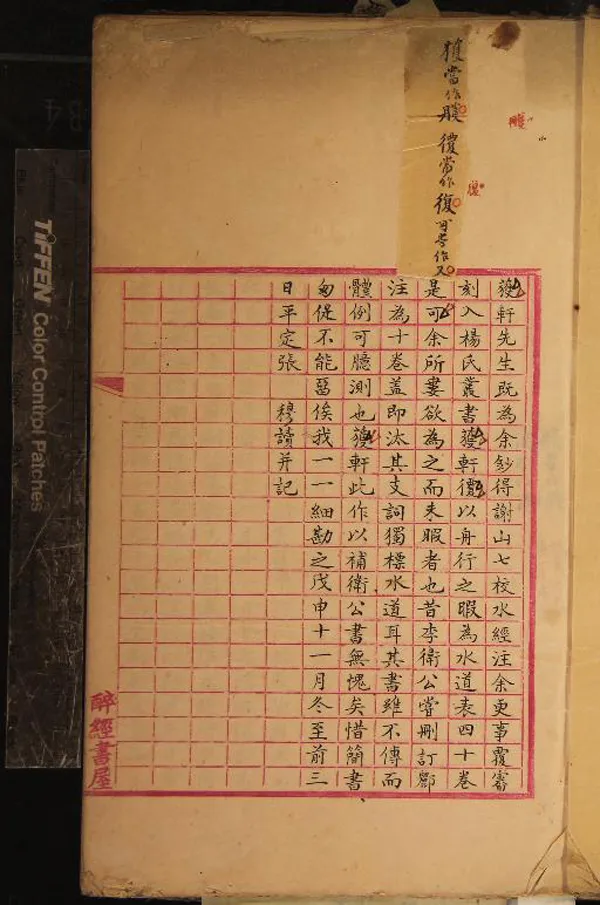 獲當作臒復當作復可當作又
臒
復
獲軒先生既為余鈔得謝山七校水經注余更事覆審
刻入楊氏叢書獲軒復以舟行之暇為水道表四十卷
是可余所婁欲為之而未暇者也昔李衛公嘗刪訂酈
注為十卷蓋即汰其支詞獨標水道耳其書雖不傳而
體例可臆測也獲軒此作以補衛公書無愧矣惜簡書
匆促不能留俟我一一細勘之戊申十一月冬至前三
日平定張 穆讀并記
醉經書屋
TIFFEN Color Control Patches